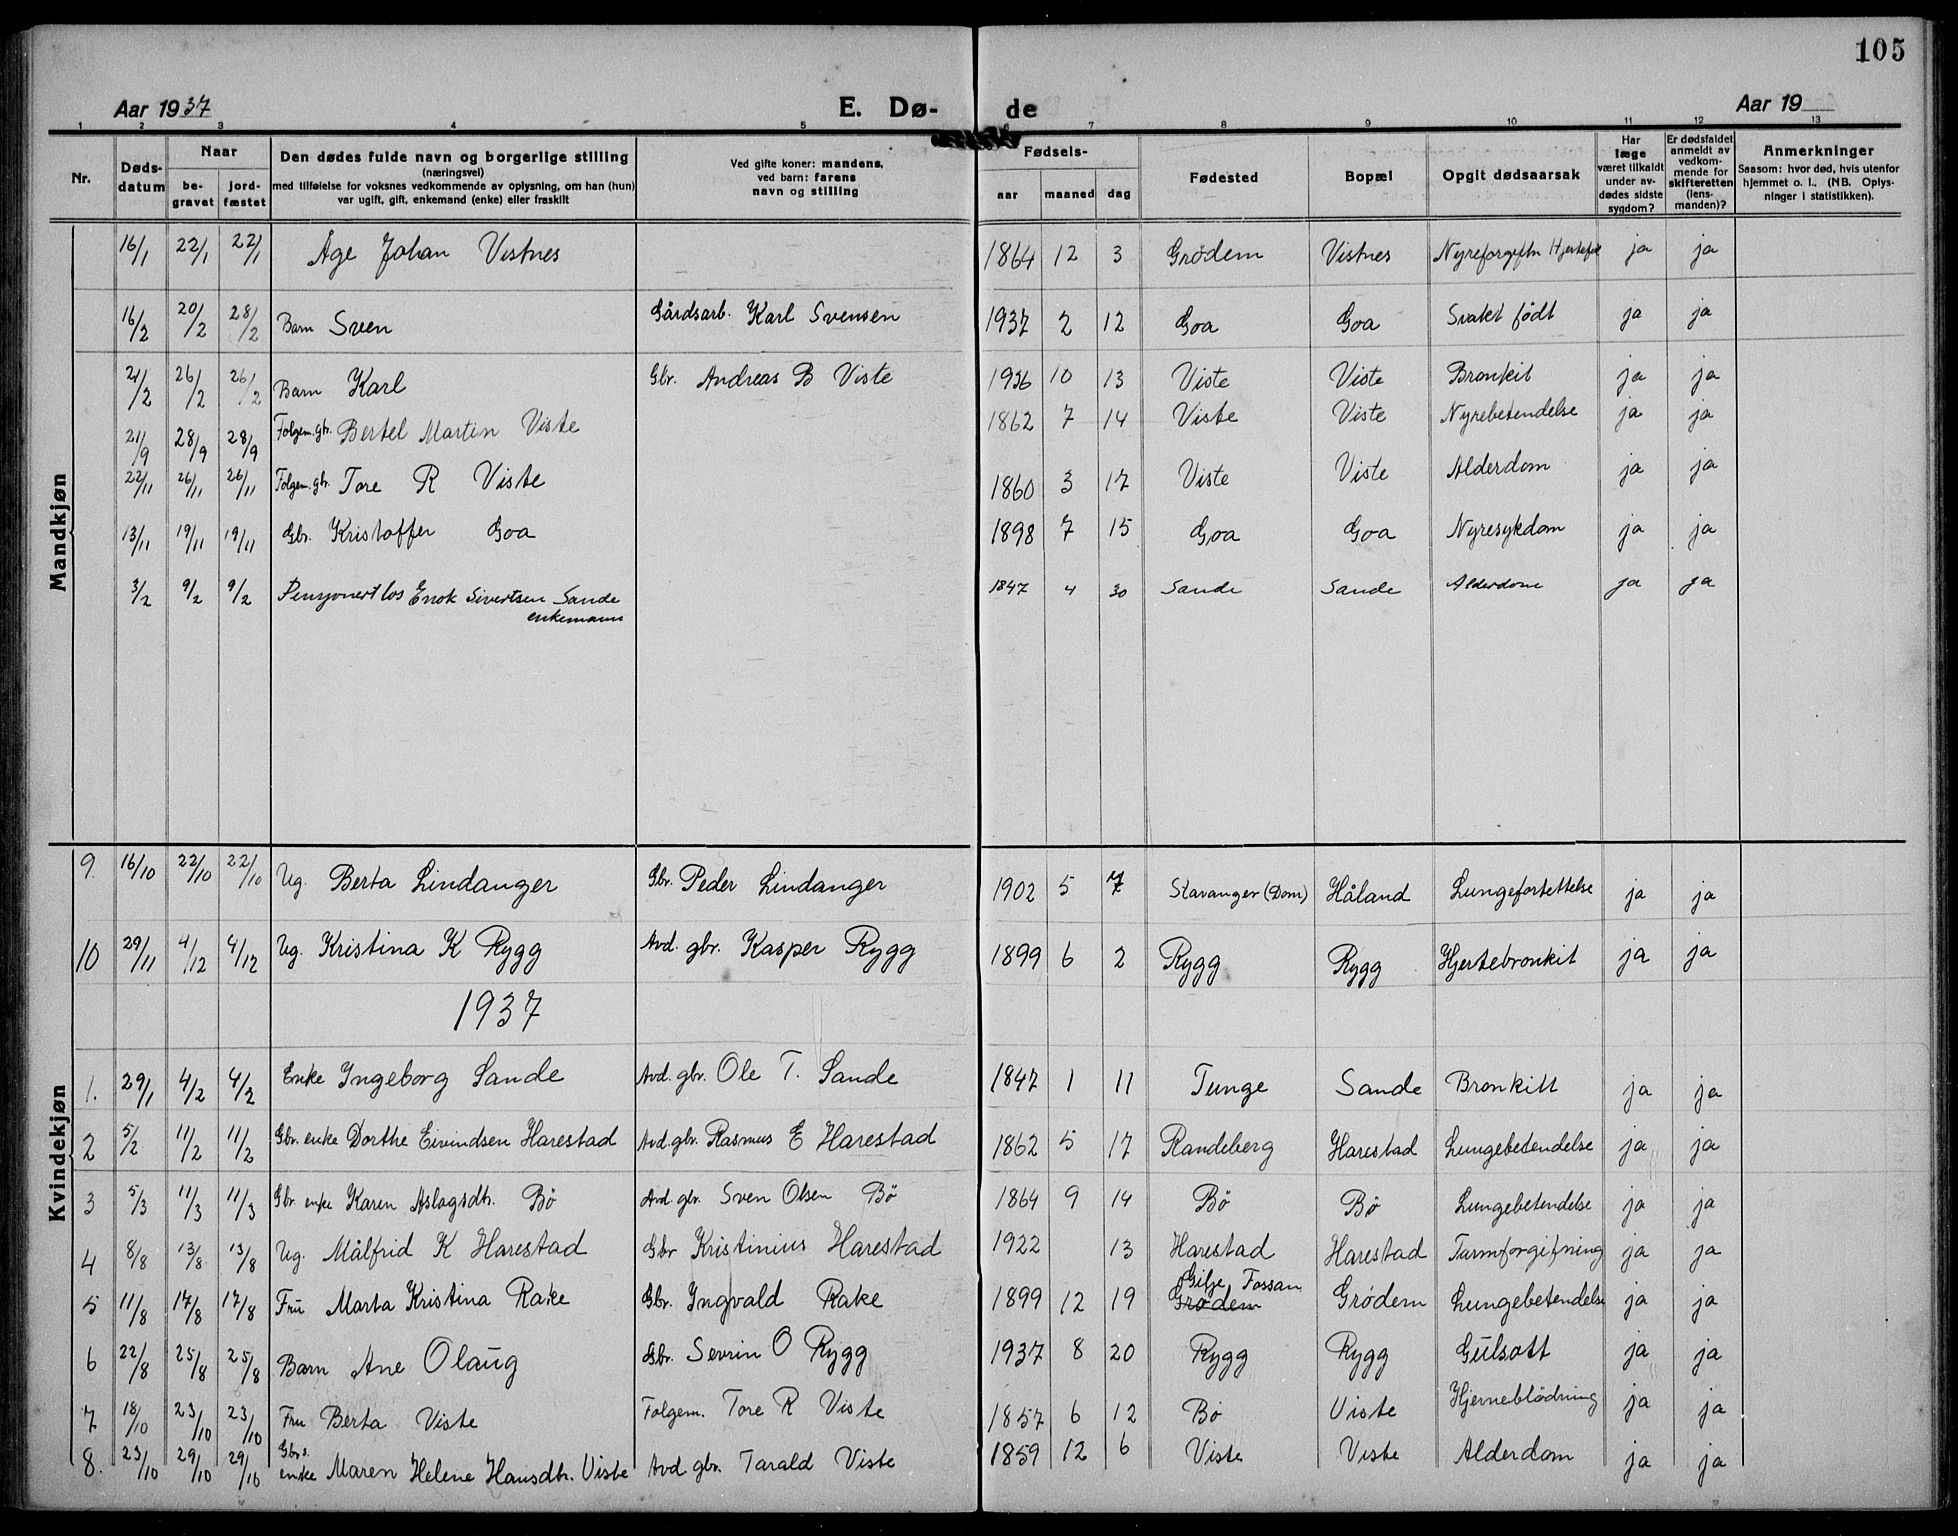 105
Aar 1937 E. Dø- de Aar 19
1 2 3 4 5 6 7 8 9 10 11 12 13
Nr. Døds-datum Naar be-gravet jord-fæstet Den dødes fulde navn og borgerlige stilling (næringsvei) med tilføielse for voksnes vedkommende av oplysning, om han (hun) var ugift, gift, enkemand (enke) eller fraskilt Ved gifte koner: mandens, ved barn: farens navn og stilling Fødsels- aar maaned dag Fødested Bopæl Opgit dødsaarsak Har læge været tilkaldt under av-dødes sidste sygdom? Er dødsfaldet anmeldt av vedkom-mende for skifteretten (lens-manden)? Anmerkninger Saasom: hvor død, hvis utenfor hjemmet o. l., (NB. Oplys-ninger i statistikken).
Mandkjøn
16/1 22/1 22/1 Åge Johan Vistnes 1864 12 3 Grødem Vistnes Nyreforgiftn Hjertefeil ja ja
16/2 20/2 28/2 Barn Sven Gårdsarb. Karl Svensen 1937 2 12 Goa Goa Svakt født ja ja
21/2 26/2 26/2 Barn Karl Gbr. Andreas B Viste 1936 10 13 Viste Viste Bronkit ja ja
21/9 28/9 28/9 Folgem. gbr. Bertel Martin Viste 1862 7 14 Viste Viste Nyrebetendelse ja ja
22/11 26/11 26/11 Folgem. gbr. Tore R Viste 1860 3 17 Viste Viste Alderdom ja ja
13/11 19/11 19/11 Gbr. Kristoffer Goa 1898 7 15 Goa Goa Nyresykdom ja ja
3/2 9/2 9/2 Pensjonert los Enok Sivertsen Sande enkemann 1847 4 30 Sande Sande Alderdom ja ja
Kvindekjøn
9. 16/10 22/10 22/10 Ug. Berta Lindanger Gbr. Peder Lindanger 1902 5 7 Stavanger (Dom) Håland Lungefortettelse ja ja
10 29/11 4/12 4/12 Ug. Kristina K Rygg Avd. gbr. Kasper Rygg 1899 6 2 Rygg Rygg Hjertebronkit ja ja
1937
1. 29/1 4/2 4/2 Enke Ingeborg Sande Avd. gbr. Ole T. Sande 1847 1 11 Tunge Sande Bronkitt ja ja
2 5/2 11/2 11/2 Gbr. enke Dorthe Eivindsen Harestad Avd. gbr. Rasmus E Harestad 1862 5 17 Randeberg Harestad Lungebetendelse ja ja
3 5/3 11/3 11/3 Gbr. enke Karen Aslagsdtr. Bø Avd. gbr. Sven Olsen Bø 1864 9 14 Bø Bø Lungebetendelse ja ja
4 8/8 13/8 13/8 Ug. Målfrid K Harestad Gbr Kristinius Harestad 1922 13 Harestad Harestad Tarmforgifning ja ja
5 11/8 17/8 17/8 Fru Marta Kristina Rake Gbr. Ingvald Rake 1899 12 19 Gilje Fossan Grødem Grødem Lungebetendelse ja ja
6 22/8 25/8 25/8 Barn Ane Olaug Gbr. Sevrin O Rygg 1937 8 20 Rygg Rygg Gulsott ja ja
7 18/10 23/10 23/10 Fru Berta Viste Folgem. Tore R Viste 1857 6 12 Bø Viste Hjerneblödning ja ja
8. 23/10 29/10 29/10 Gbrs. enke Maren Helene Hansdtr. Viste Avd gbr. Tarald Viste 1859 12 6 Viste Viste Alderdom ja ja